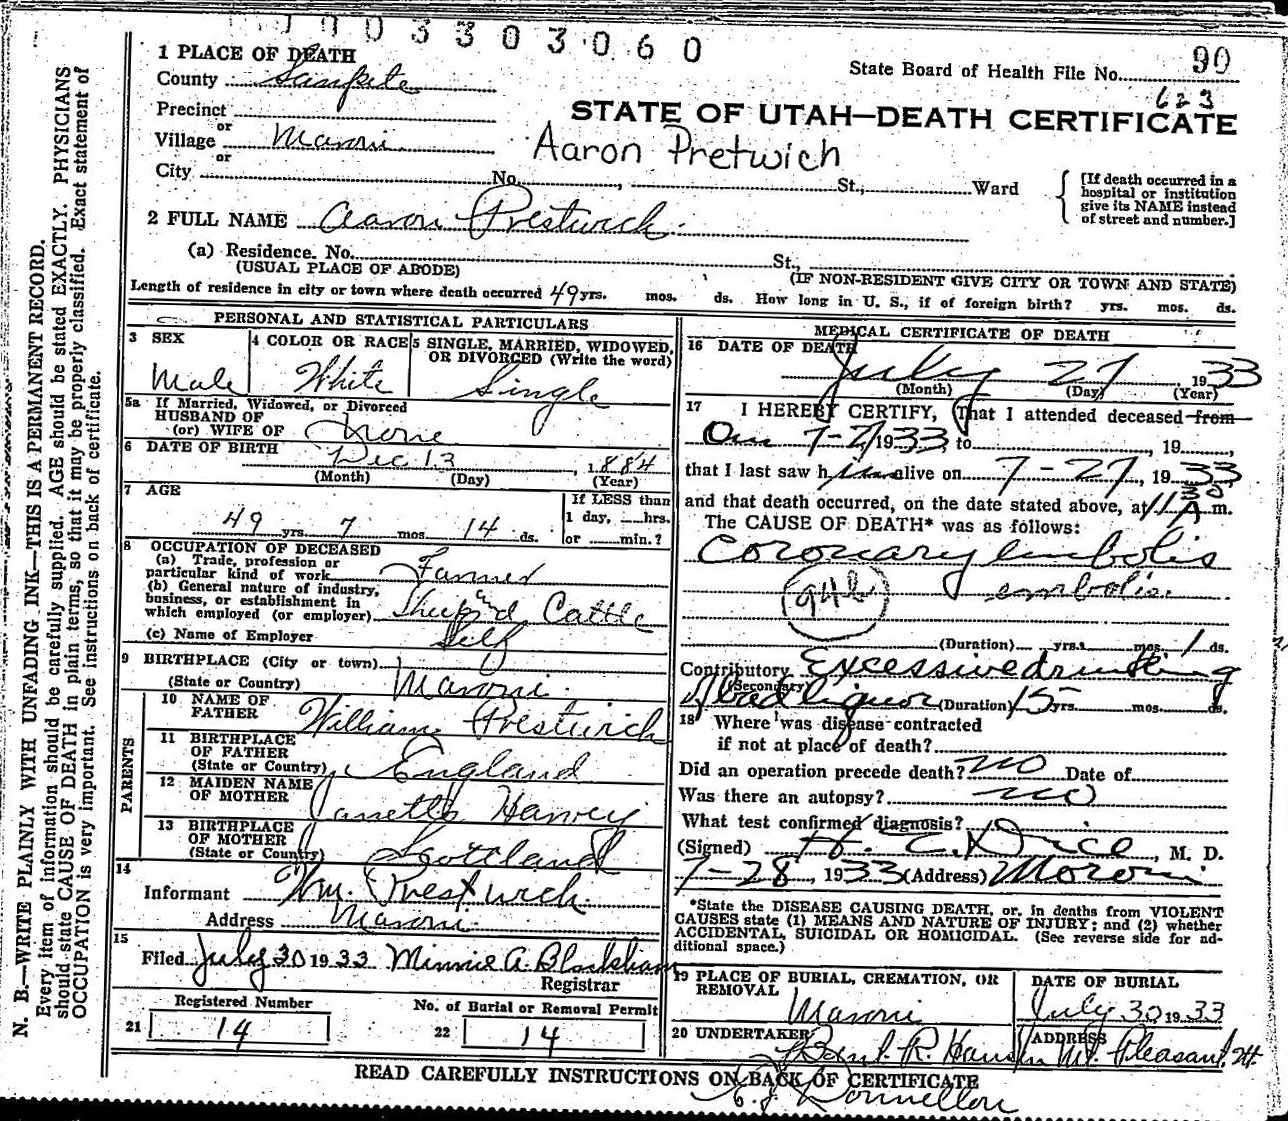 1003303060
90
State Board of Health File No.
623
1 PLACE OF DEATH
County Sanpete
STATE OF UTAH—DEATH CERTIFICATE
Precinct
or
Village Moroni
Aaron Pretwich
or
City No. , St., Ward
[If death occurred in a hospital or institution give its NAME instead of street and number.]
2 FULL NAME Aaron Prestwich
(a) Residence. No. St.,
(USUAL PLACE OF ABODE) (IF NON-RESIDENT GIVE CITY OR TOWN AND STATE)
Length of residence in city or town where death occurred 49 yrs. mos. ds. How long in U. S., if of foreign birth? yrs. mos. ds.
PERSONAL AND STATISTICAL PARTICULARS
3 SEX
Male
4 COLOR OR RACE
White
5 SINGLE, MARRIED, WIDOWED,
OR DIVORCED (Write the word)
Single
5a If Married, Widowed, or Divorced
HUSBAND OF
(or) WIFE OF None
6 DATE OF BIRTH Dec 13, 1884
(Month) (Day) (Year)
7 AGE
49 yrs. 7 mos. 14 ds.
If LESS than
1 day, hrs.
or min.?
8 OCCUPATION OF DECEASED
(a) Trade, profession or
particular kind of work Farmer
(b) General nature of industry,
business, or establishment in
which employed (or employer) Sheep and Cattle
(c) Name of Employer Self
9 BIRTHPLACE (City or town)
(State or Country) Moroni
PARENTS
10 NAME OF
FATHER William Prestwich
11 BIRTHPLACE
OF FATHER
(State or Country) England
12 MAIDEN NAME
OF MOTHER Janetta Harvey
13 BIRTHPLACE
OF MOTHER
(State or Country) Scottland
14
Informant Wm. Prestwich
Address Moroni
15
Filed July 30 1933 Minnie A. Blackham
Registrar
Registered Number
21 14
No. of Burial or Removal Permit
22 14
MEDICAL CERTIFICATE OF DEATH
16 DATE OF DEATH
July 27, 1933
(Month) (Day) (Year)
17 I HEREBY CERTIFY, That I attended deceased from
On 7-27 1933, to , 19
that I last saw him alive on 7-27, 1933
and that death occurred, on the date stated above, at 11 30 A m.
The CAUSE OF DEATH* was as follows:
Coronary embolis
94b
embolis.
(Duration) yrs. mos. 1 ds.
Contributory Excessive drinking
(Secondary)
of bad liquor (Duration) 15 yrs. mos. ds.
18 Where was disease contracted
if not at place of death?
Did an operation precede death? no Date of
Was there an autopsy? no
What test confirmed diagnosis?
(Signed) H. C. Dice, M. D.
7-28, 1933 (Address) Moroni
*State the DISEASE CAUSING DEATH, or, in deaths from VIOLENT
CAUSES state (1) MEANS AND NATURE OF INJURY; and (2) whether
ACCIDENTAL, SUICIDAL OR HOMICIDAL. (See reverse side for ad-
ditional space.)
19 PLACE OF BURIAL, CREMATION, OR
REMOVAL
Moroni
DATE OF BURIAL
July 30 1933
20 UNDERTAKER
R. Hansen
ADDRESS
Mt. Pleasant, Ut
READ CAREFULLY INSTRUCTIONS ON BACK OF CERTIFICATE
N. B.—WRITE PLAINLY WITH UNFADING INK—THIS IS A PERMANENT RECORD.
Every item of information should be carefully supplied. AGE should be stated EXACTLY. PHYSICIANS
should state CAUSE OF DEATH in plain terms, so that it may be properly classified. Exact statement of
OCCUPATION is very important. See instructions on back of certificate.